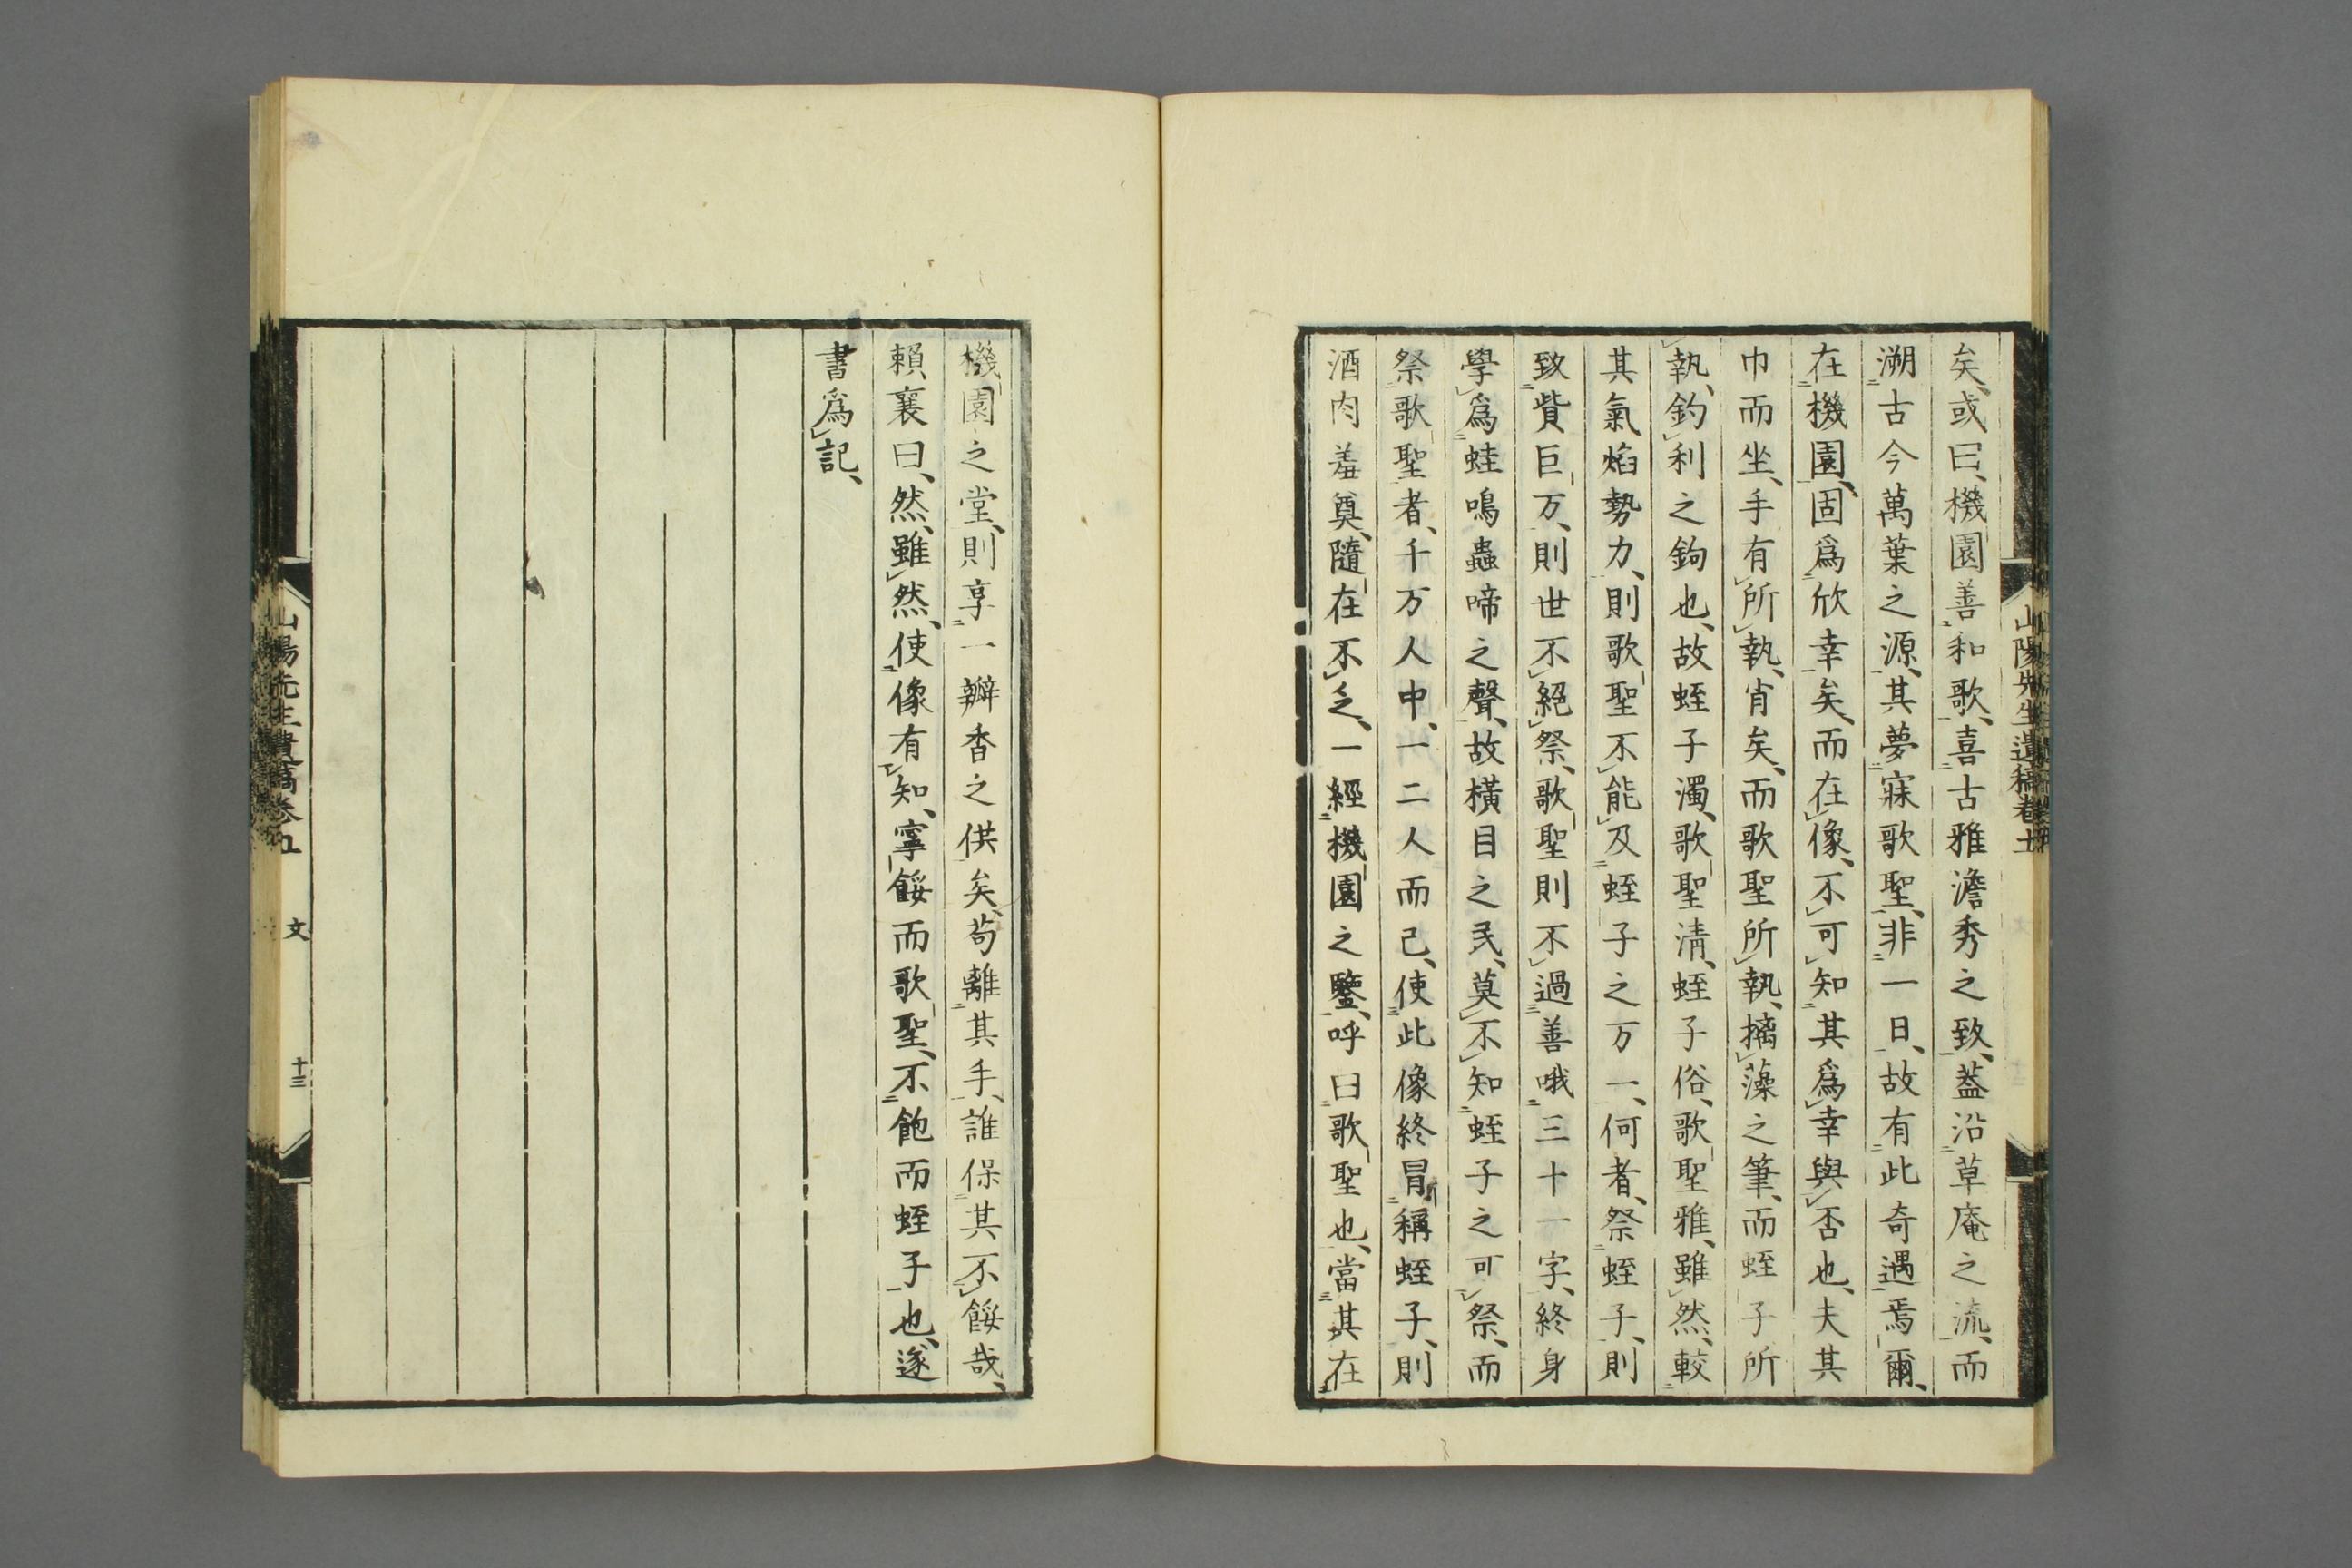 矣、或曰、機園善和歌、喜古雅澹秀之致、蓋沿草庵之流、而
溯古今萬葉之源、其夢寐歌聖、非一日、故有此奇遇焉爾、
在機園、固爲欣幸矣、而在像、不可知其爲幸與否也、夫其
巾而坐、手有所執、肖矣、而歌聖所執、摛藻之筆、而蛭子所
執、釣利之鉤也、故蛭子濁、歌聖淸、蛭子俗、歌聖雅、雖然、較
其氣焰勢力、則歌聖不能及蛭子之万一、何者、祭蛭子、則
致貲巨万、則世不絕祭、歌聖則不過善哦三十一字、終身
學爲蛙鳴蟲啼之聲、故橫目之民、莫不知蛭子之可祭、而
祭歌聖者、千万人中、一二人而已、使此像終冒稱蛭子、則
酒肉羞奠、隨在不乏、一經機園之鑒、呼曰歌聖也、當其在
山陽先生遺稿卷
機園之堂、則享一瓣香之供矣、苟離其手、誰保其不餒哉、
賴襄曰、然、雖然、使像有知、寧餒而歌聖、不飽而蛭子也、遂
書爲記、
山陽先生遺稿卷五 文 十三